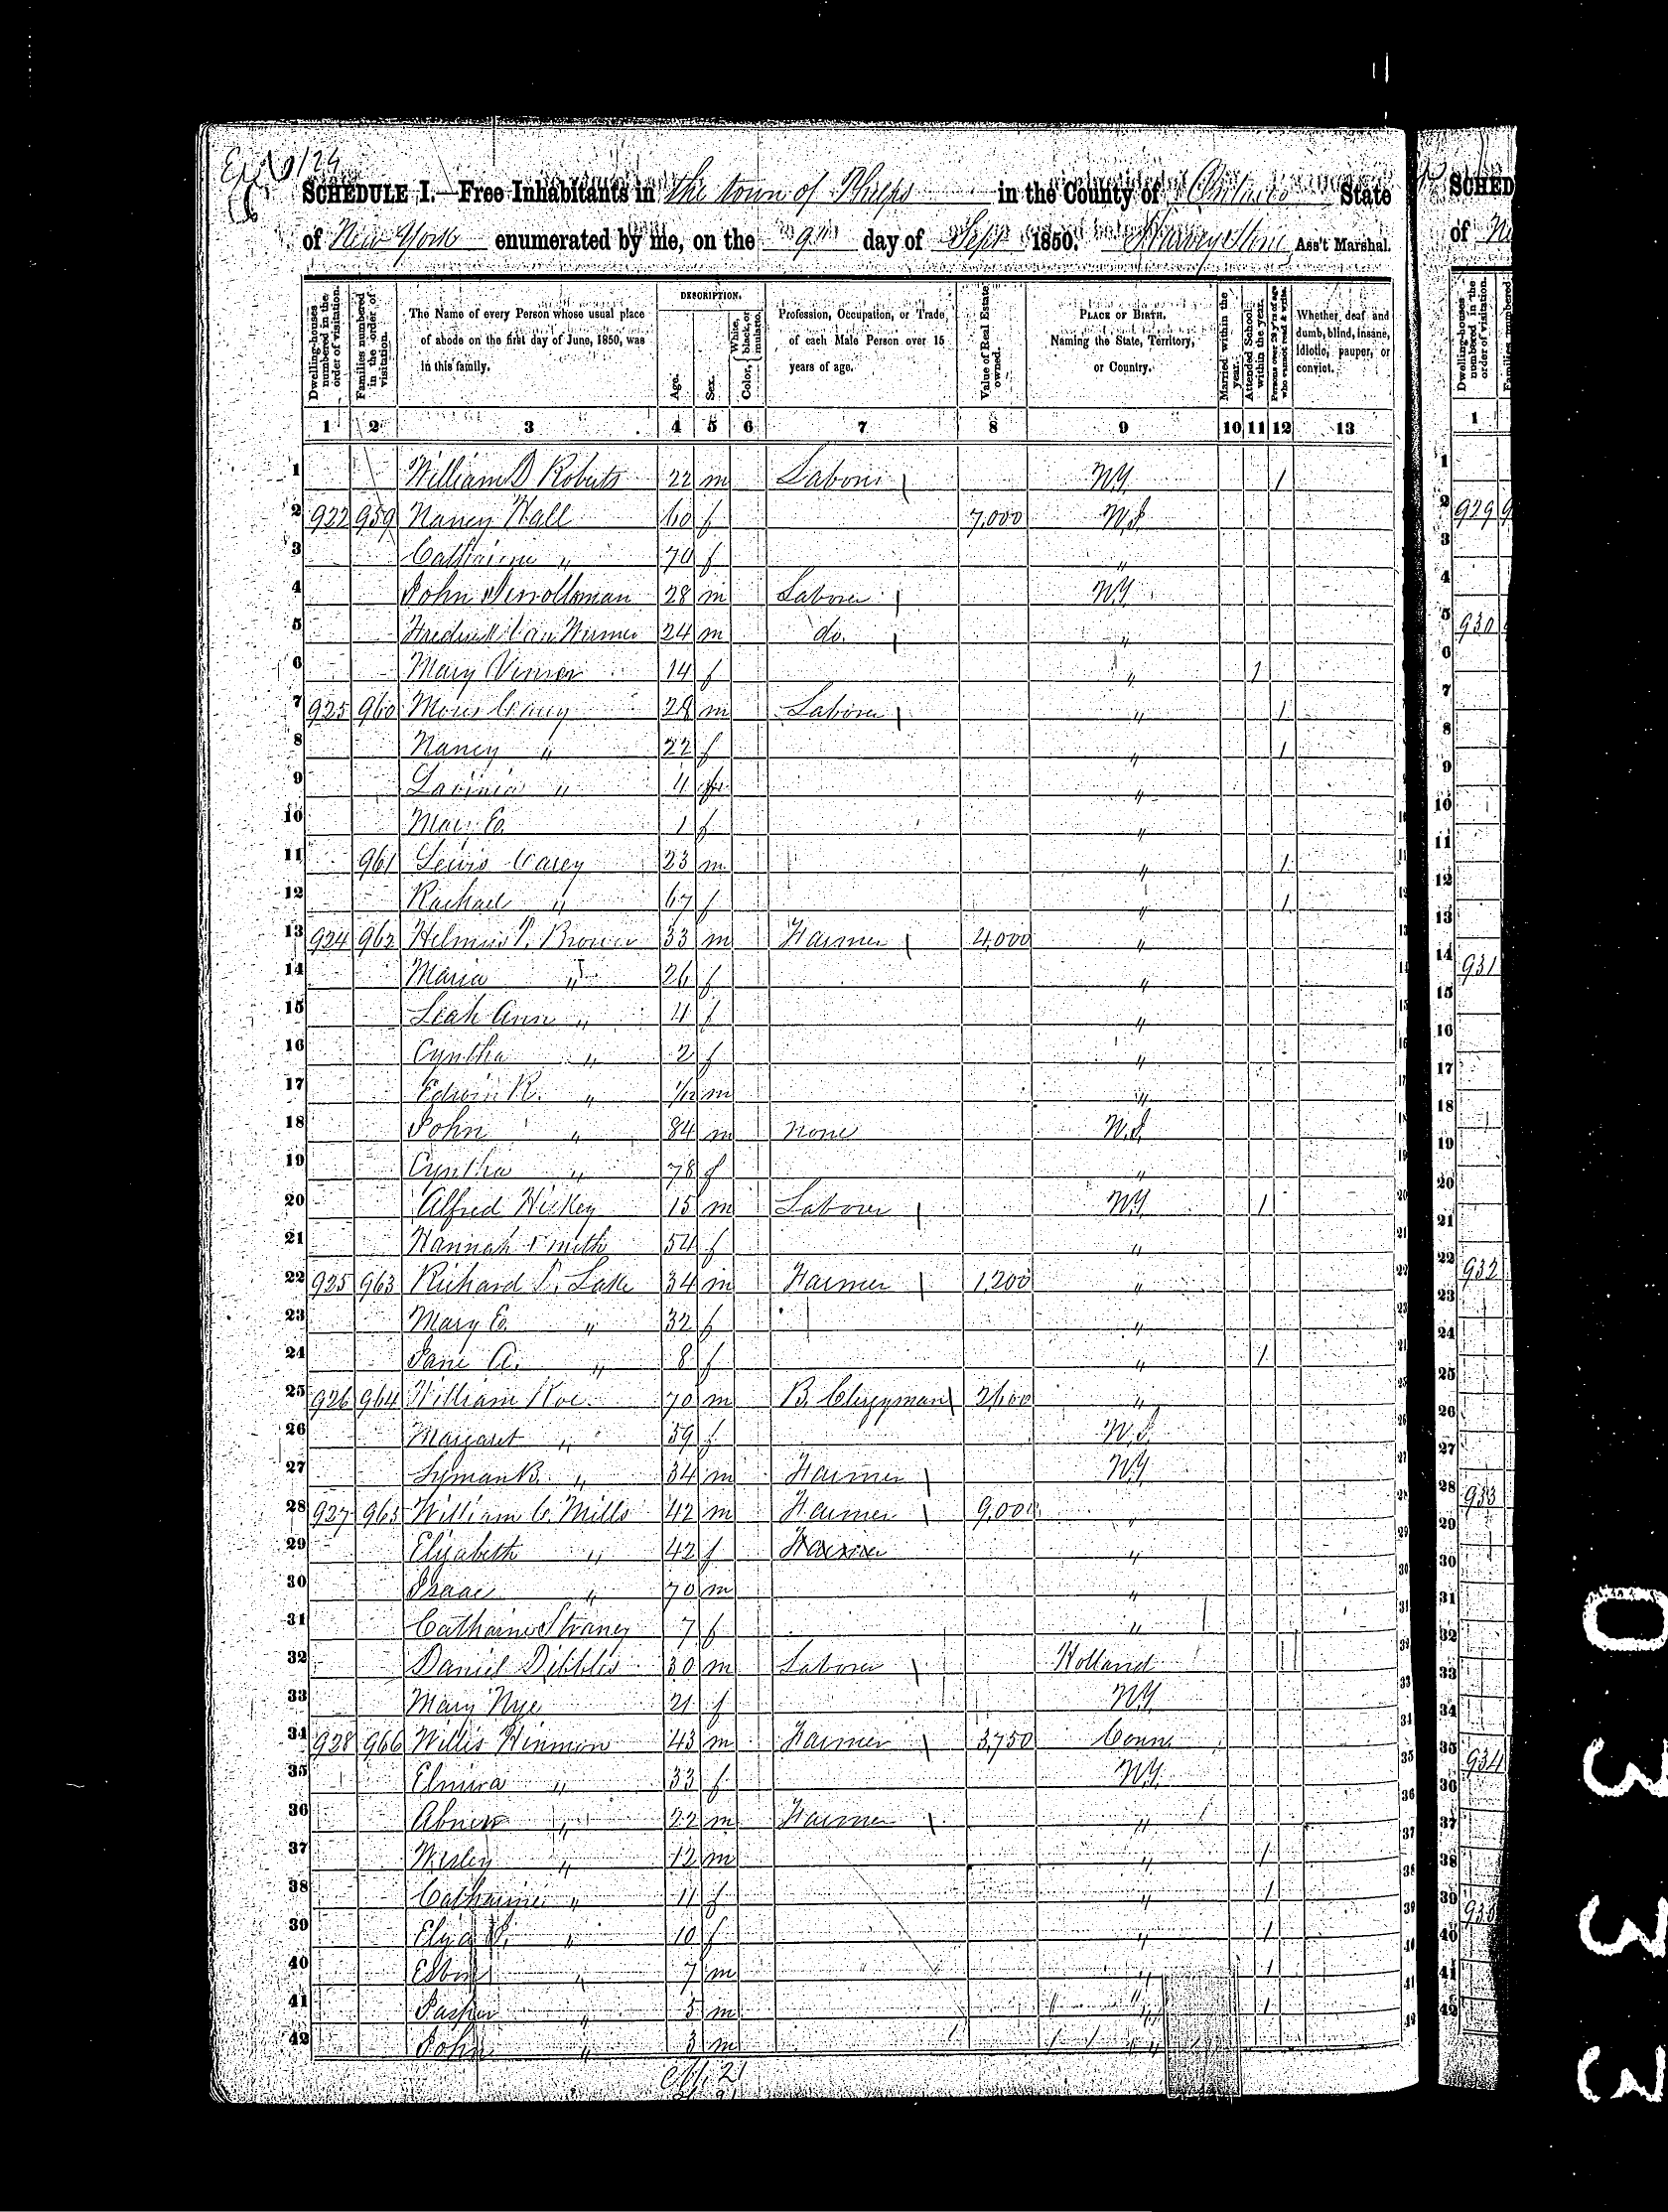 SCHEDULE I.—Free Inhabitants in the town of Phelps in the County of Ontario State
of New York enumerated by me, on the 9th day of Sept 1850. Harvey Stone Ass't Marshal.
Dwelling-houses numbered in the order of visitation.
Families numbered in the order of visitation.
The Name of every Person whose usual place of abode on the first day of June, 1850, was in this family.
DESCRIPTION.
Age.
Sex.
Color, White, black, or mulatto.
Profession, Occupation, or Trade of each Male Person over 15 years of age.
Value of Real Estate owned.
PLACE OF BIRTH. Naming the State, Territory, or Country.
Married within the year.
Attended School within the year.
Persons over 20 y'rs of age who cannot read & write.
Whether deaf and dumb, blind, insane, idiotic, pauper, or convict.
1 2 3 4 5 6 7 8 9 10 11 12 13
1 William D Roberts 22 m Laborer NY 1
2 922 959 Nancy Hall 60 f 7,000 N.J.
3 Catharine " 70 f "
4 John 28 m Laborer NY
5 Frederick 24 m do. "
6 Mary 14 f " 1
7 925 960 Carey 28 m Laborer " 1
8 Nancy " 22 f " 1
9 Lavinia " 4 f "
10 Mary E. 1 f "
11 961 Lewis Carey 23 m " 1
12 Rachael " 67 f " 1
13 924 962 Helmus P. Brower 33 m Farmer 4,000 "
14 Maria " 26 f "
15 Leah Ann " 4 f "
16 Cyntha " 2 f "
17 Edwin R. " 1/12 m "
18 John " 84 m none N.J.
19 Cyntha " 78 f "
20 Alfred Hickey 15 m Laborer NY 1
21 Hannah Smith 54 f "
22 925 963 Richard P. Lake 34 m Farmer 1,200 "
23 Mary E. " 32 f "
24 Jane A. " 8 f " 1
25 926 964 William Roe 70 m B. Clergyman 2600 "
26 Margaret " 59 f N.J.
27 Lyman B. " 34 m Farmer NY
28 927 965 William C. Mills 42 m Farmer 9,000 "
29 Elizabeth " 42 f Farmer "
30 Isaac " 70 m "
31 Catharine Straney 7 f "
32 Daniel Dibbles 30 m Laborer Holland
33 Mary Nye 21 f NY
34 928 966 Willis Hinmon 43 m Farmer 3,750 Conn.
35 Elmira " 33 f NY
36 Abner " 22 m Farmer "
37 Wesley " 12 m " 1
38 Catharine " 11 f " 1
39 Eliza " 10 f " 1
40 Esbon " 7 m " 1
41 Jasper " 5 m " 1
42 John " 3 m "
SCHED
of
1
929
930
931
932
933
934
935
0333